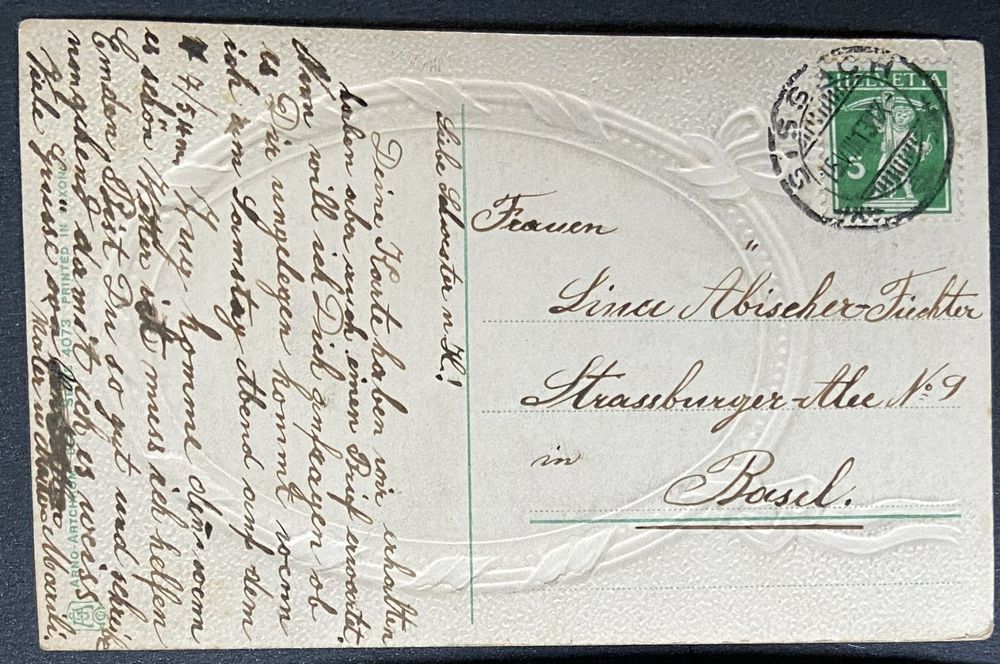 Liebe Schwester u. K!
Deine Karte haben wir erhalten
haben aber auch einen Brief erwartet.
Nun will ich Dich anfragen ob
es Dir ungelegen kommt wenn
ich am Samstag Abend auf dem
7/54 Zug komme denn wenn
es schön Wetter ist muss ich helfen
Emden Seist Du so gut und schreibe
umgehend damit ich es weiss
Viele Grüsse von
Mater u. Marieli,
ARNO-ARTCHROM 4073 PRINTED IN SAXONY
SISSACH
HELVETIA
5
Frauen
Lina Abischer-Fiechter
Strassburger-Alee No 9
in
Basel.